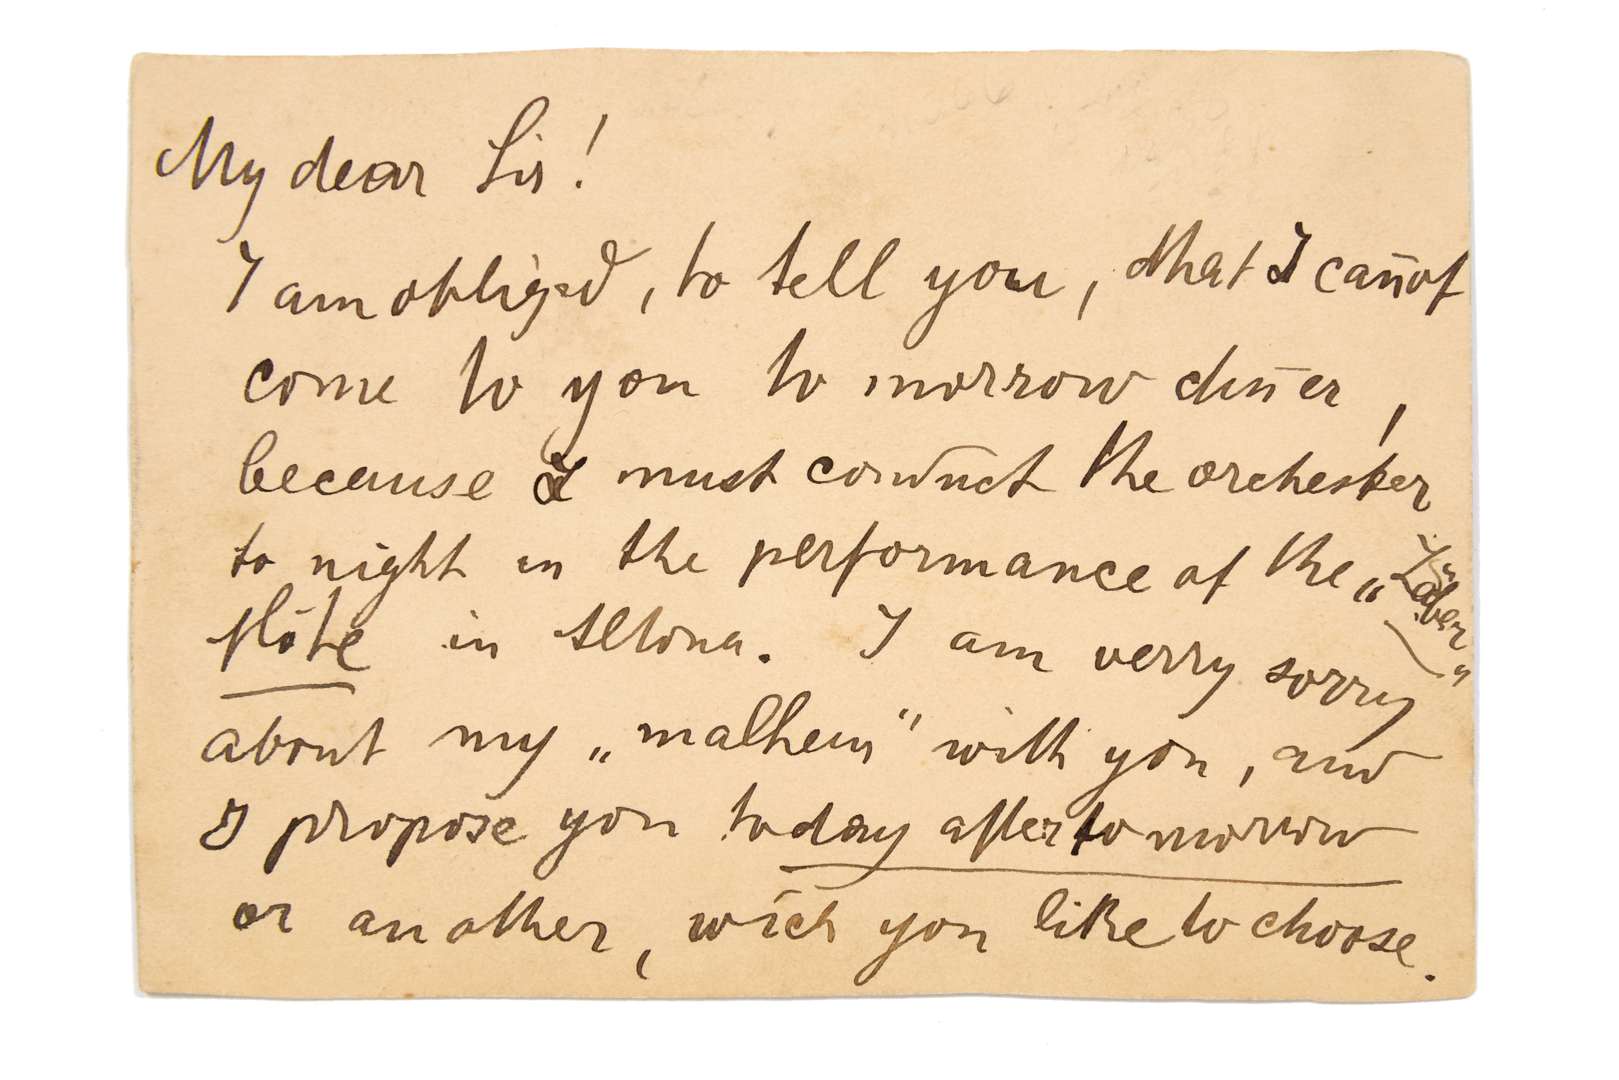 My dear Sir!
I am obliged, to tell you, that I can̄ot
come to you to morrow din̄er,
because I must conduct the orchester
to night in the performance of the „Zauber
flöte“ in Altona. I am verry sorry
about my „malheur“ with you, and
I propose you today aftertomorrow
or another, wich you like to choose.